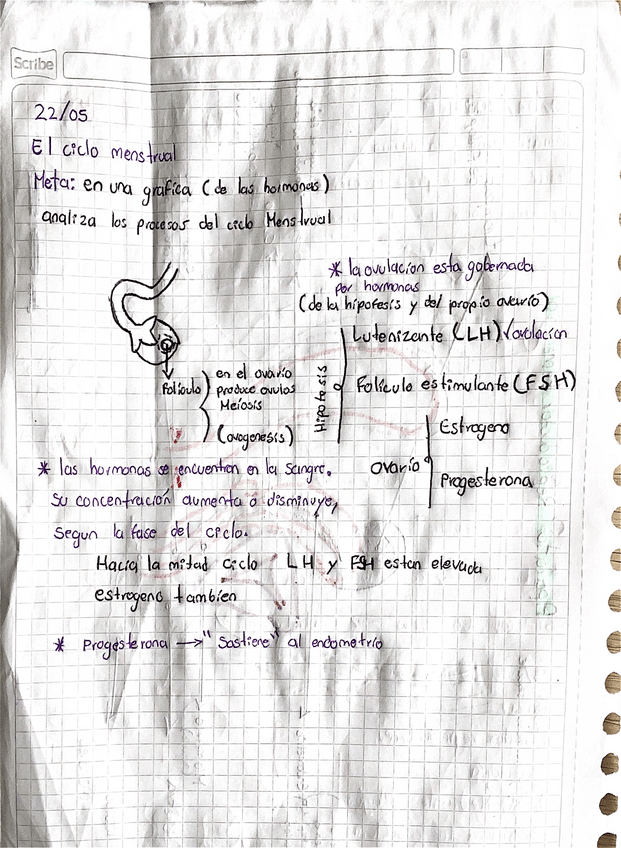 Scribe
22/05
El ciclo menstrual
Meta: en una grafica (de las hormonas)
analiza los procesos del ciclo Menstrual
* la ovulacion esta gobernada
por hormonas
(de la hipofesis y del propio ovario)
Hipofesis
Lutenizante (LH) ovulacion
Foliculo estimulante (FSH)
ovario
Estrogeno
Progesterona
Foliculo
en el ovario
produce ovulos
Meiosis
(ovogenesis)
* las hormonas se encuentran en la sangre.
Su concentración aumenta o disminuye,
segun la fase del ciclo.
Hacia la mitad ciclo LH y FSH estan elevada
estrogeno tambien
* Progesterona → "Sostiene" al endometrio